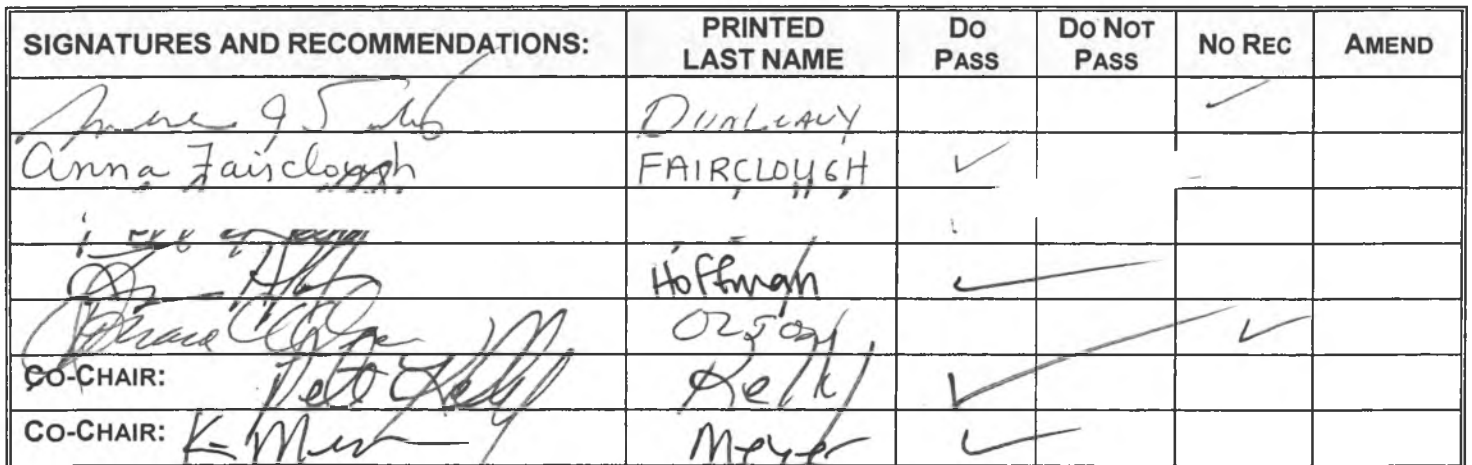 SIGNATURES AND RECOMMENDATIONS: PRINTED LAST NAME DO PASS DO NOT PASS NO REC AMEND
DUNLEAVY ✓
Anna Fairclough FAIRCLOUGH ✓
Hoffman ✓
OLSON ✓
CO-CHAIR: Pete Kelly Kelly ✓
CO-CHAIR: Meyer ✓